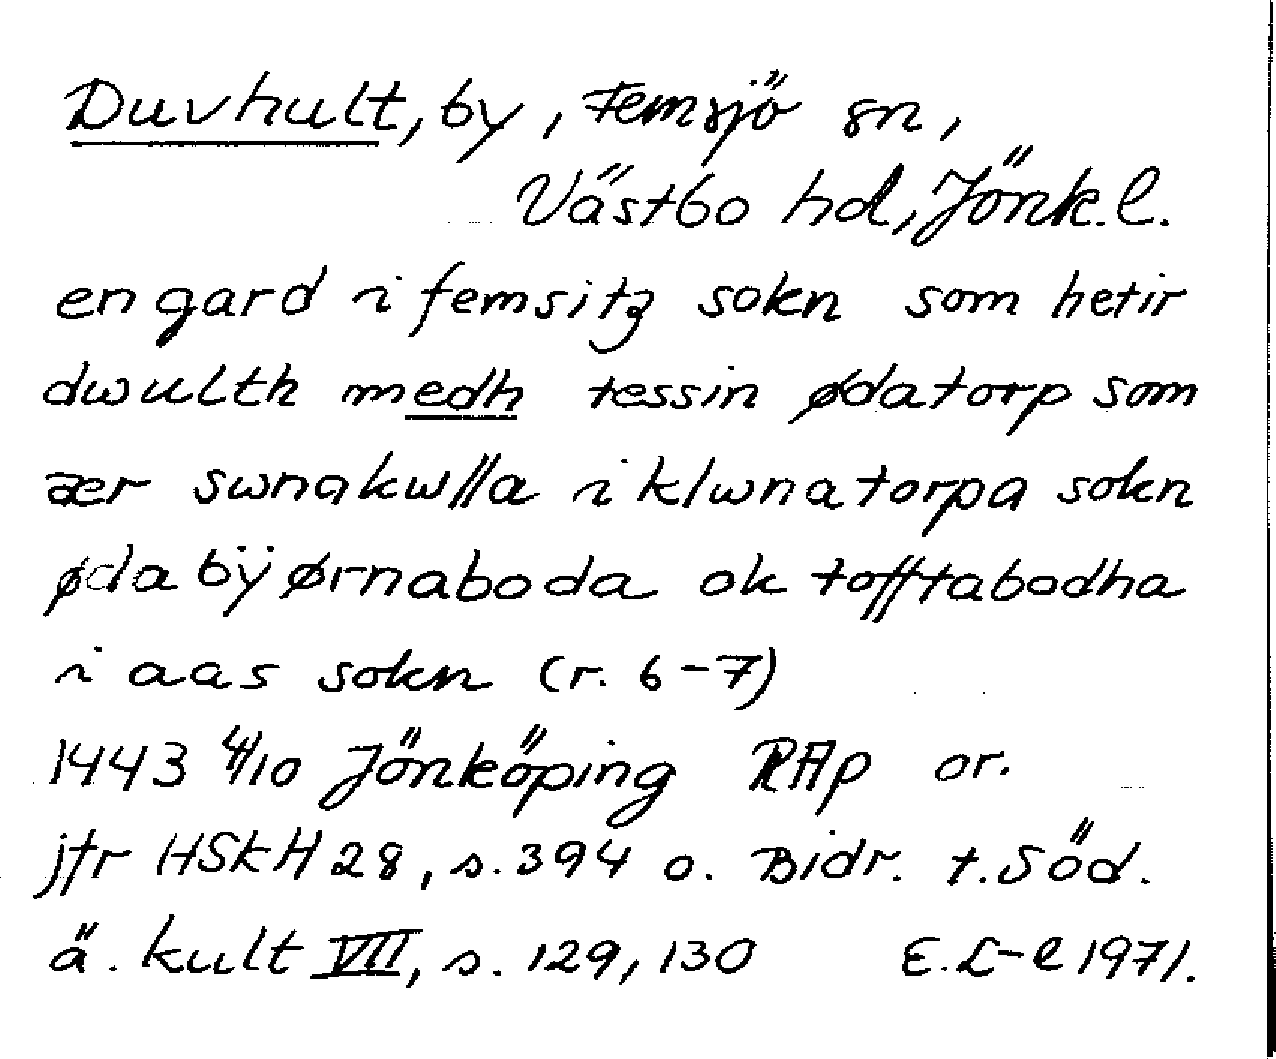 Duvhult, by, Femsjö sn,
Västbo hd, Jönk. l.
en gard i femsitz sokn som hetir
dwulth medh tessin ødatorp som
ær swnakwlla i klwnatorpa sokn
øda bÿ ørnaboda ok tofftabodha
i aas sokn (r. 6-7)
1443 4/10 Jönköping RAp or.
jfr HSkH 28, s. 394 o. Bidr. t. Söd.
ä. kult VII, s. 129, 130 E. L-e 1971.